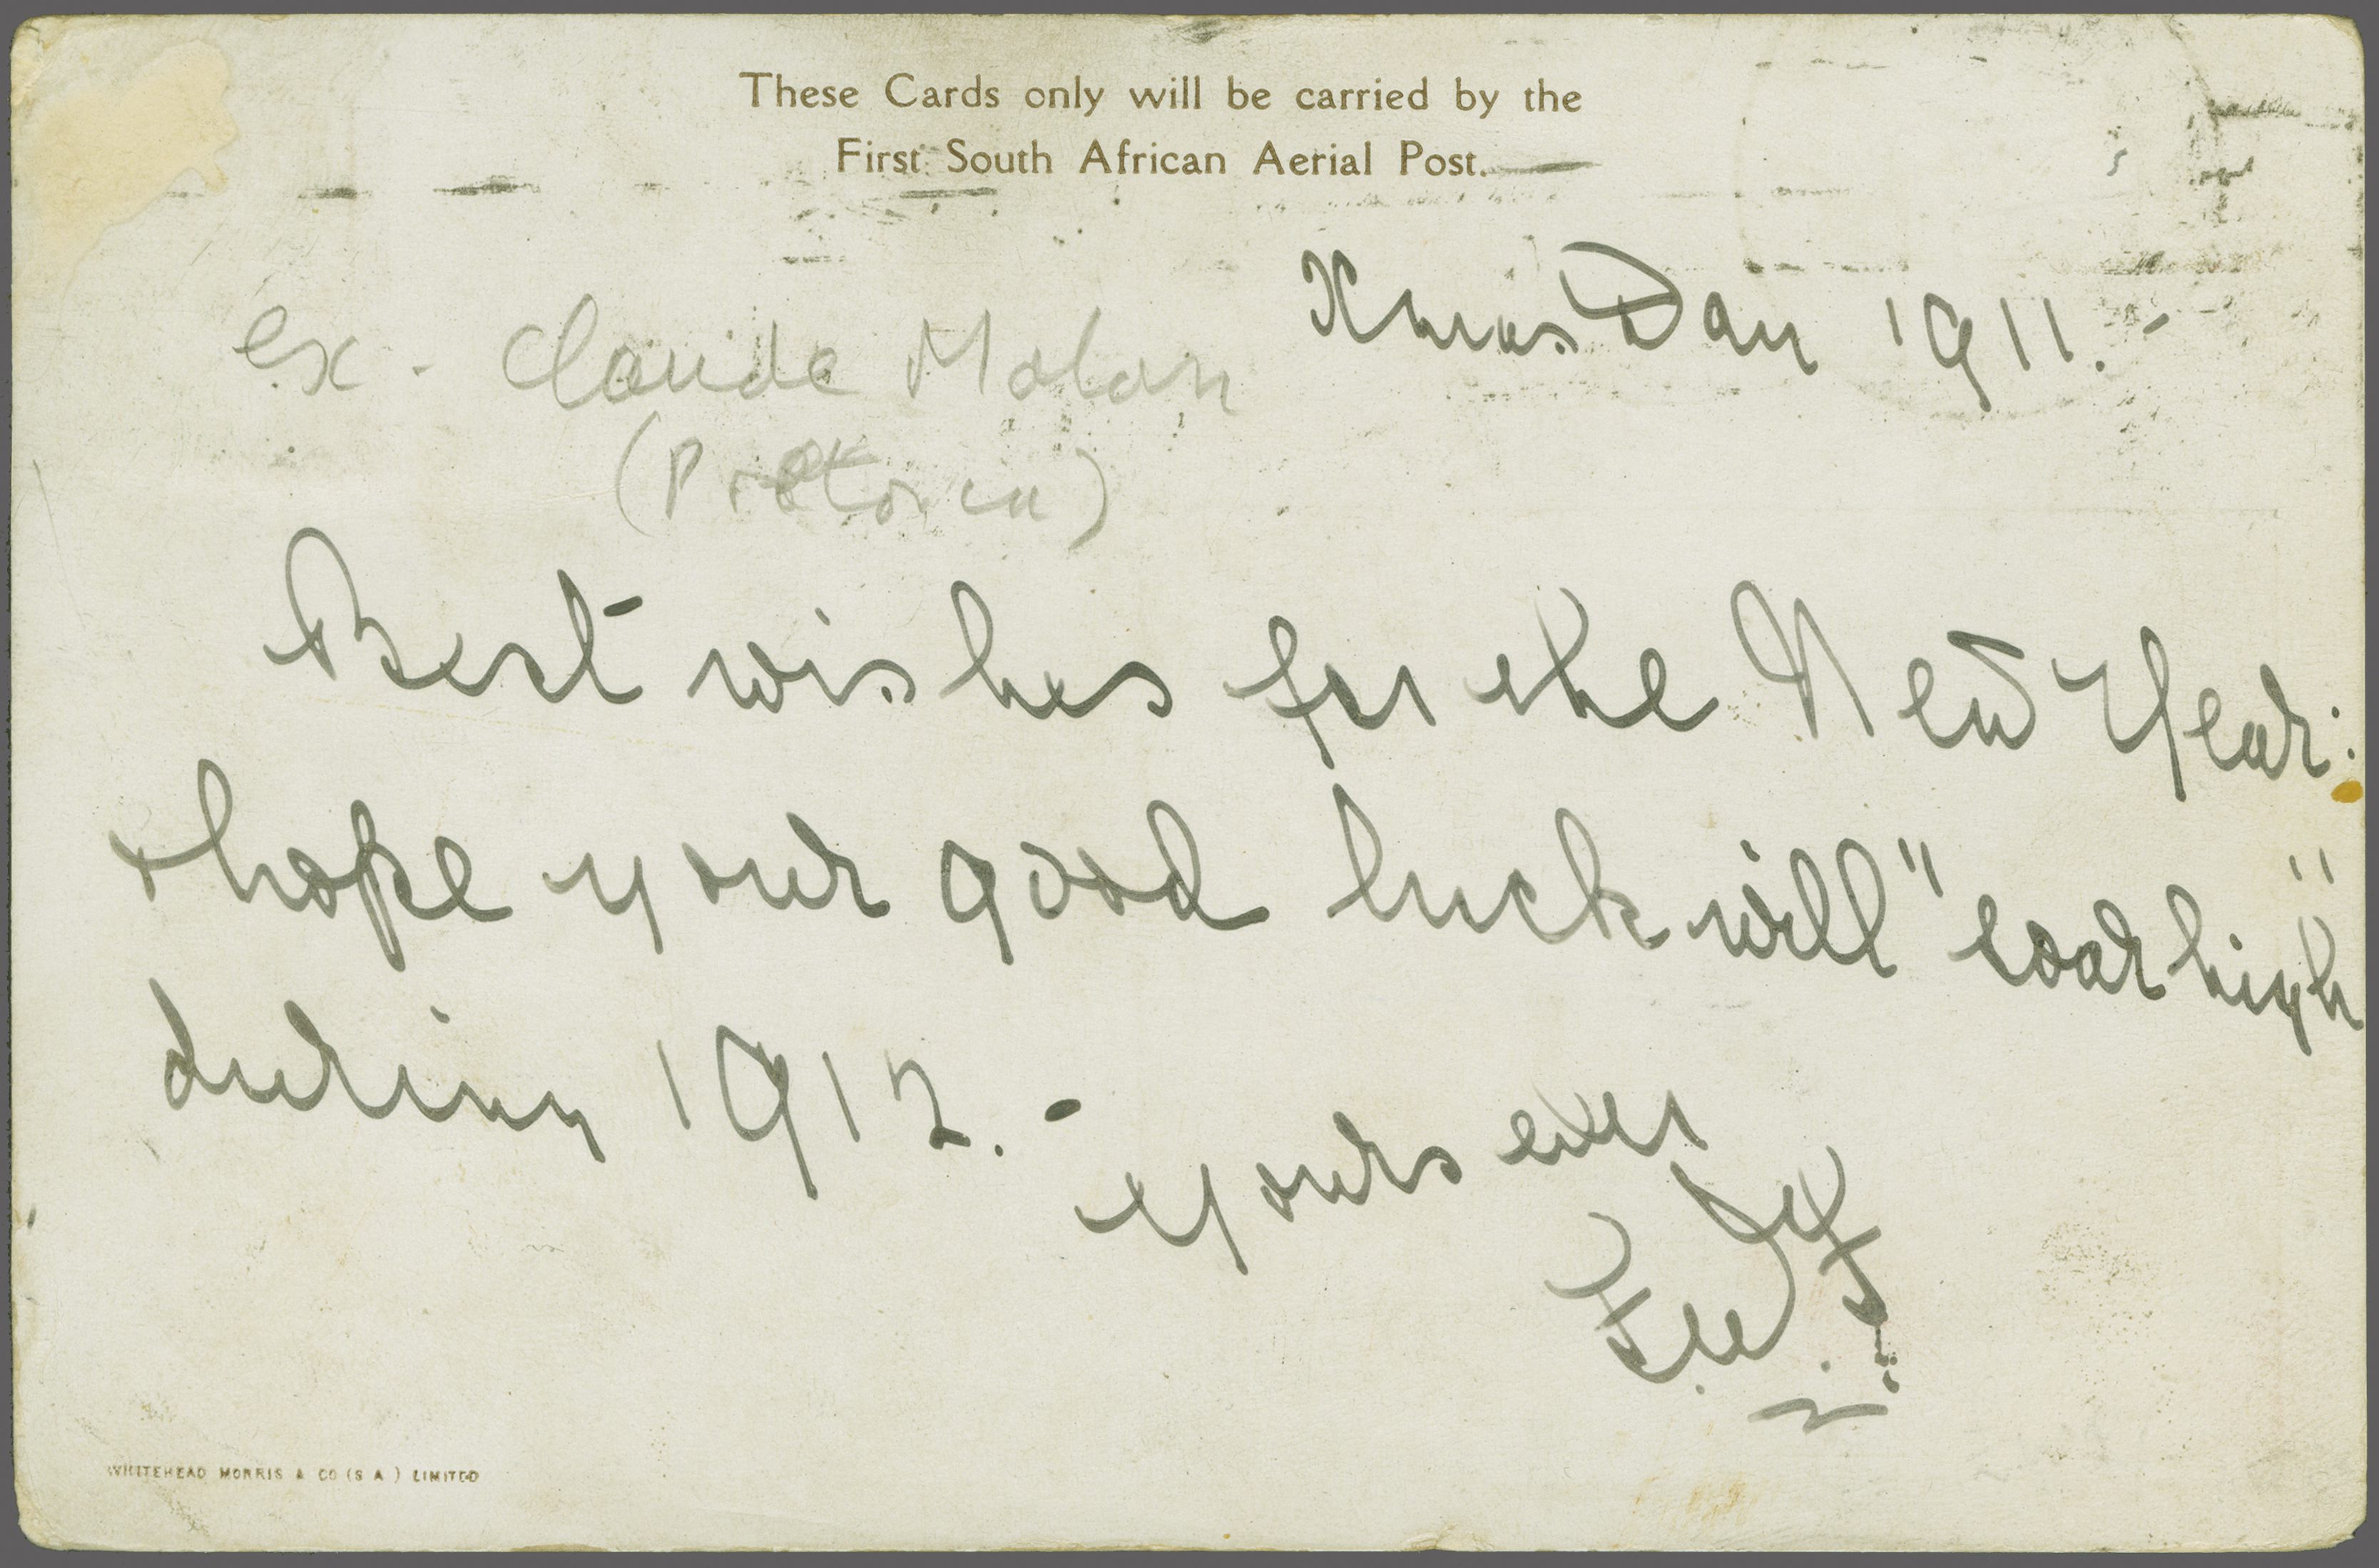 These Cards only will be carried by the
First South African Aerial Post.
Xmas Day 1911.-
ex. Claude Malan
(Pretoria)
Best wishes for the New Year:
& hope your good luck will "soar high"
during 1912.-
Yours ever
WHITEHEAD MORRIS & CO (S A) LIMITED